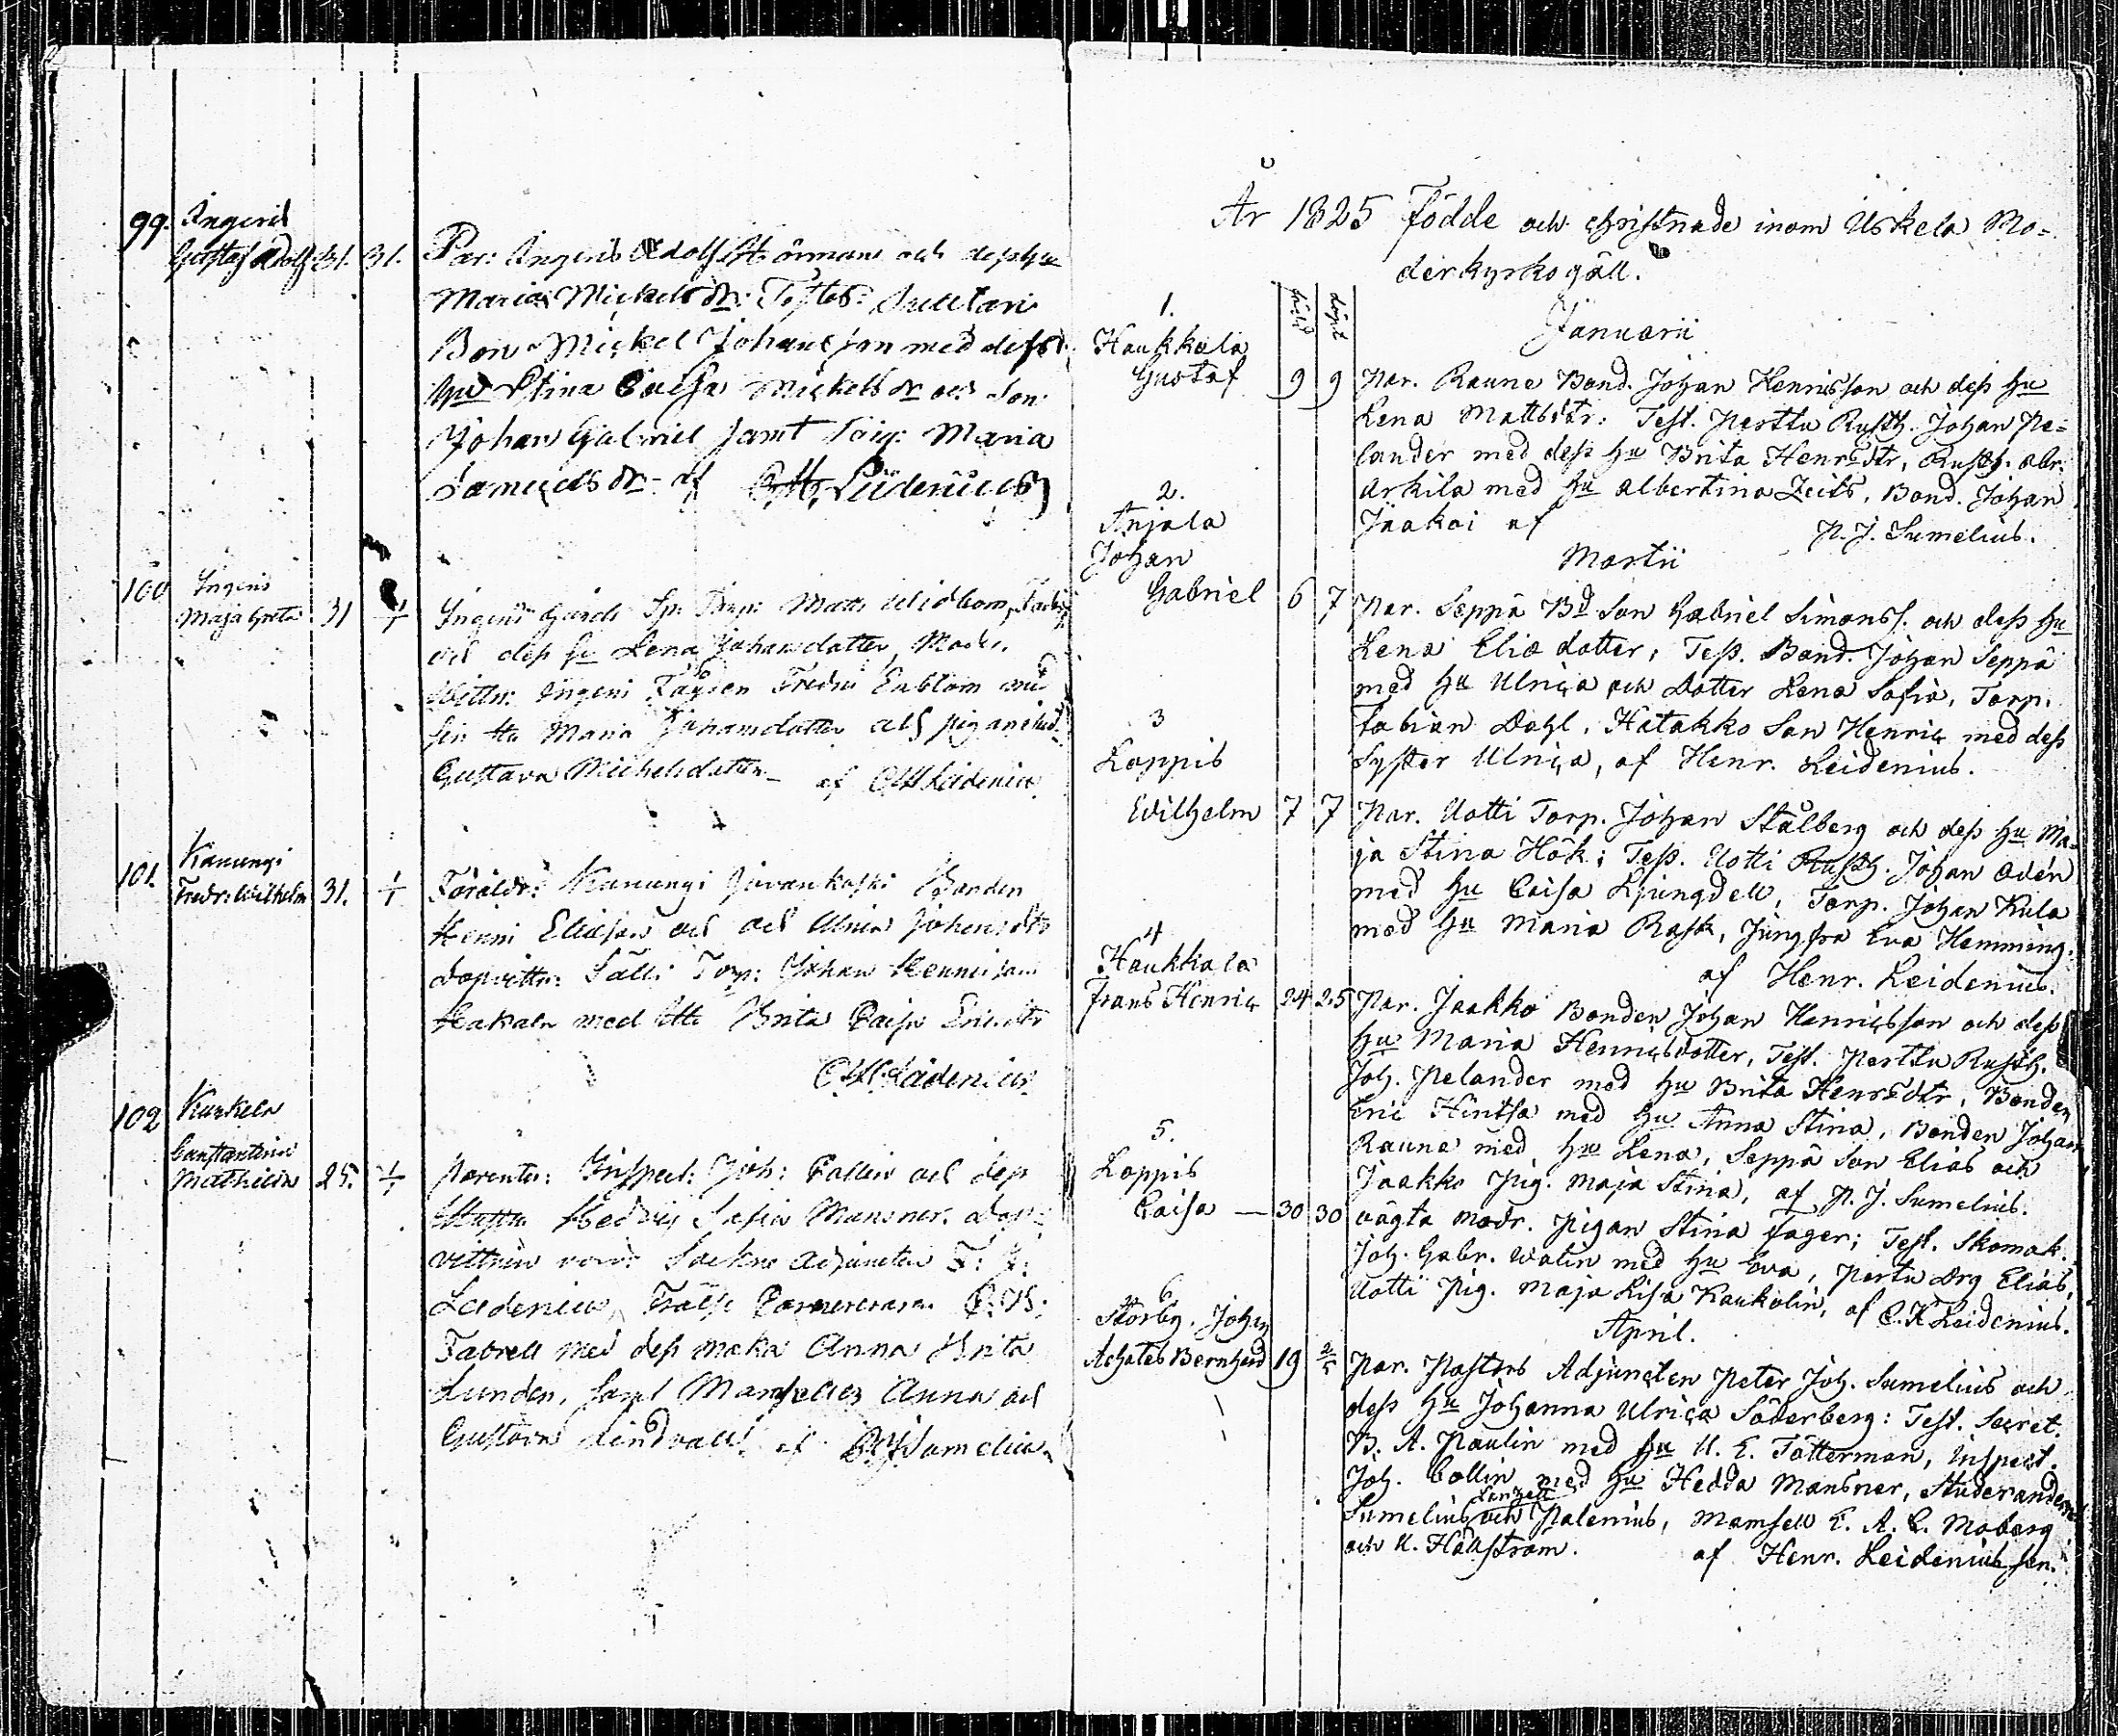 99. Ingeris
Gustaf Adolf 31. 31. Par: Ingeris Adolf Strömman och dess Hu
Maria Mickelsdr: Testes:
Bon. Mickel Johansson med dess
Hu Stina Caisa Mickelsdr och Son
Johan Gabriel samt Pig: Maria
Samuelsdr af Leidenius
100 Ingeris
Maja Greta 31 1/1 Ingeris Gårds Torp: Matts Widbom, Fader
och dess Hu Lena Johansdotter, Moder.
Wittn: Ingeris Fredric Enblom med
sin Hu Maria Johansdotter och pigan
Gustava Michelsdotter af Leidenius
101. Kanungi
Fredr: Wilhelm 31. 1/1 Föräldr: Kanungi Juvankoski Bonden
Henric Eliasson och Ulrica Johansdtr
Dopvittn: Torp: Johan Henricsson
med Hu Brita Caisa Ericsdtr
Leidenius
102 Kurkela
Constantina
Mathilda 25. 1/1 Parentes: Inspect: Joh: Collin och dess
Hustru Hedvig Sofia Mansner. Dop
vittnen voro: Sockne Adjuncten
Leidenius,
Fabrell med dess maka Anna Brita
Lunden, samt Mamseller Anna och
Gustava Lindvall. af P. J. Sumelius
År 1825 Födde och christnade inom Uskela Mo-
derkyrkogäll.
född döpt
Januarii
1.
Haukkala
Gustaf 9 9 Par. Raune Bond. Johan Henricsson och dess Hu
Lena Mattsdtr: Test. Perttu Rusth. Johan Pe-
lander med dess Hu Brita Henrsdtr, Rusth. Abr.
Arkila med Hu Albertina Zeits, Bond. Johan
Jaakoi af P. J. Sumelius.
Martii
2.
Anjala
Johan
Gabriel 6 7 Par. Seppä Bd Son Gabriel Simonss. och dess Hu
Lena Eliædotter, Test. Bond. Johan Seppä
med Hu Ulrica och Dotter Lena Sofia, Torp.
Fabian Dahl, Hatakko Son Henric med dess
Syster Ulrica, af Henr. Leidenius.
3
Loppis
Wilhelm 7 7 Par. Uotti Torp. Johan Stålberg och dess Hu Ma-
ja Stina Hök; Test. Uotti Rusth. Johan Odén
med Hu Caisa Ljungdell, Torp. Johan Kula
med Hu Maria Rask, Jungfra Eva Hemming.
af Henr. Leidenius.
4
Haukkala
Frans Henric 24 25 Par. Jaakko Bonden Johan Henricsson och dess
Hu Maria Henricsdotter, Test. Perttu Rusth.
Joh. Pelander med Hu Brita Henrsdtr, Bonden
Eric Hintsa med Hu Anna Stina, Bonden Johan
Raune med Hu Lena, Seppä Son Elias och
Jaakko Pig. Maja Stina, af P. J. Sumelius.
5.
Loppis
Caisa — 30 30 oägta Modr. Pigan Stina Fager; Test. Skomak.
Joh. Gabr. Walin med Hu Eva, Pertu Drg Elias,
Uotti Pig. Maja Lisa Kaukolin, af C. H Leidenius.
April.
6.
Storby. Johan
Achates Bernhard 19 2/5 Par. Pastors Adjuncten Peter Joh. Sumelius och
dess Hu Johanna Ulrica Söderberg: Test. Secret.
B. A. Paulin med Hu U. E. Tötterman, Inspect.
Joh. Collin med Hu Hedda Mansner, Studerandena
Sumelius och Palenius, Mamsell E. A. C. Moberg
och U. Hällström. af Henr. Leidenius sen.